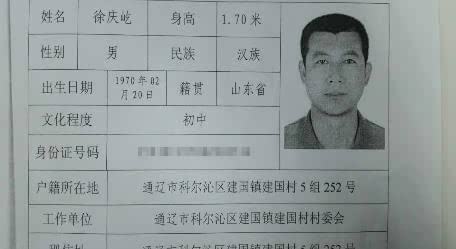 姓名 徐庆屹 身高 1.70 米
性别 男 民族 汉族
出生日期 1970 年 02 月 20 日 籍贯 山东省
文化程度 初中
身份证号码
户籍所在地 通辽市科尔沁区建国镇建国村 5 组 252 号
工作单位 通辽市科尔沁区建国镇建国村村委会
现住址 通辽市科尔沁区建国镇建国村 5 组 252 号